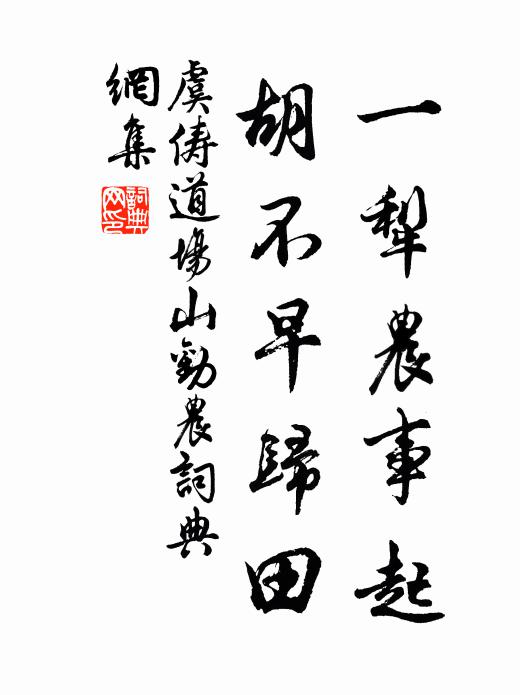 一犁農事起
胡不早歸田
虞儔道場山勸農詞典
網集
詞典
网印